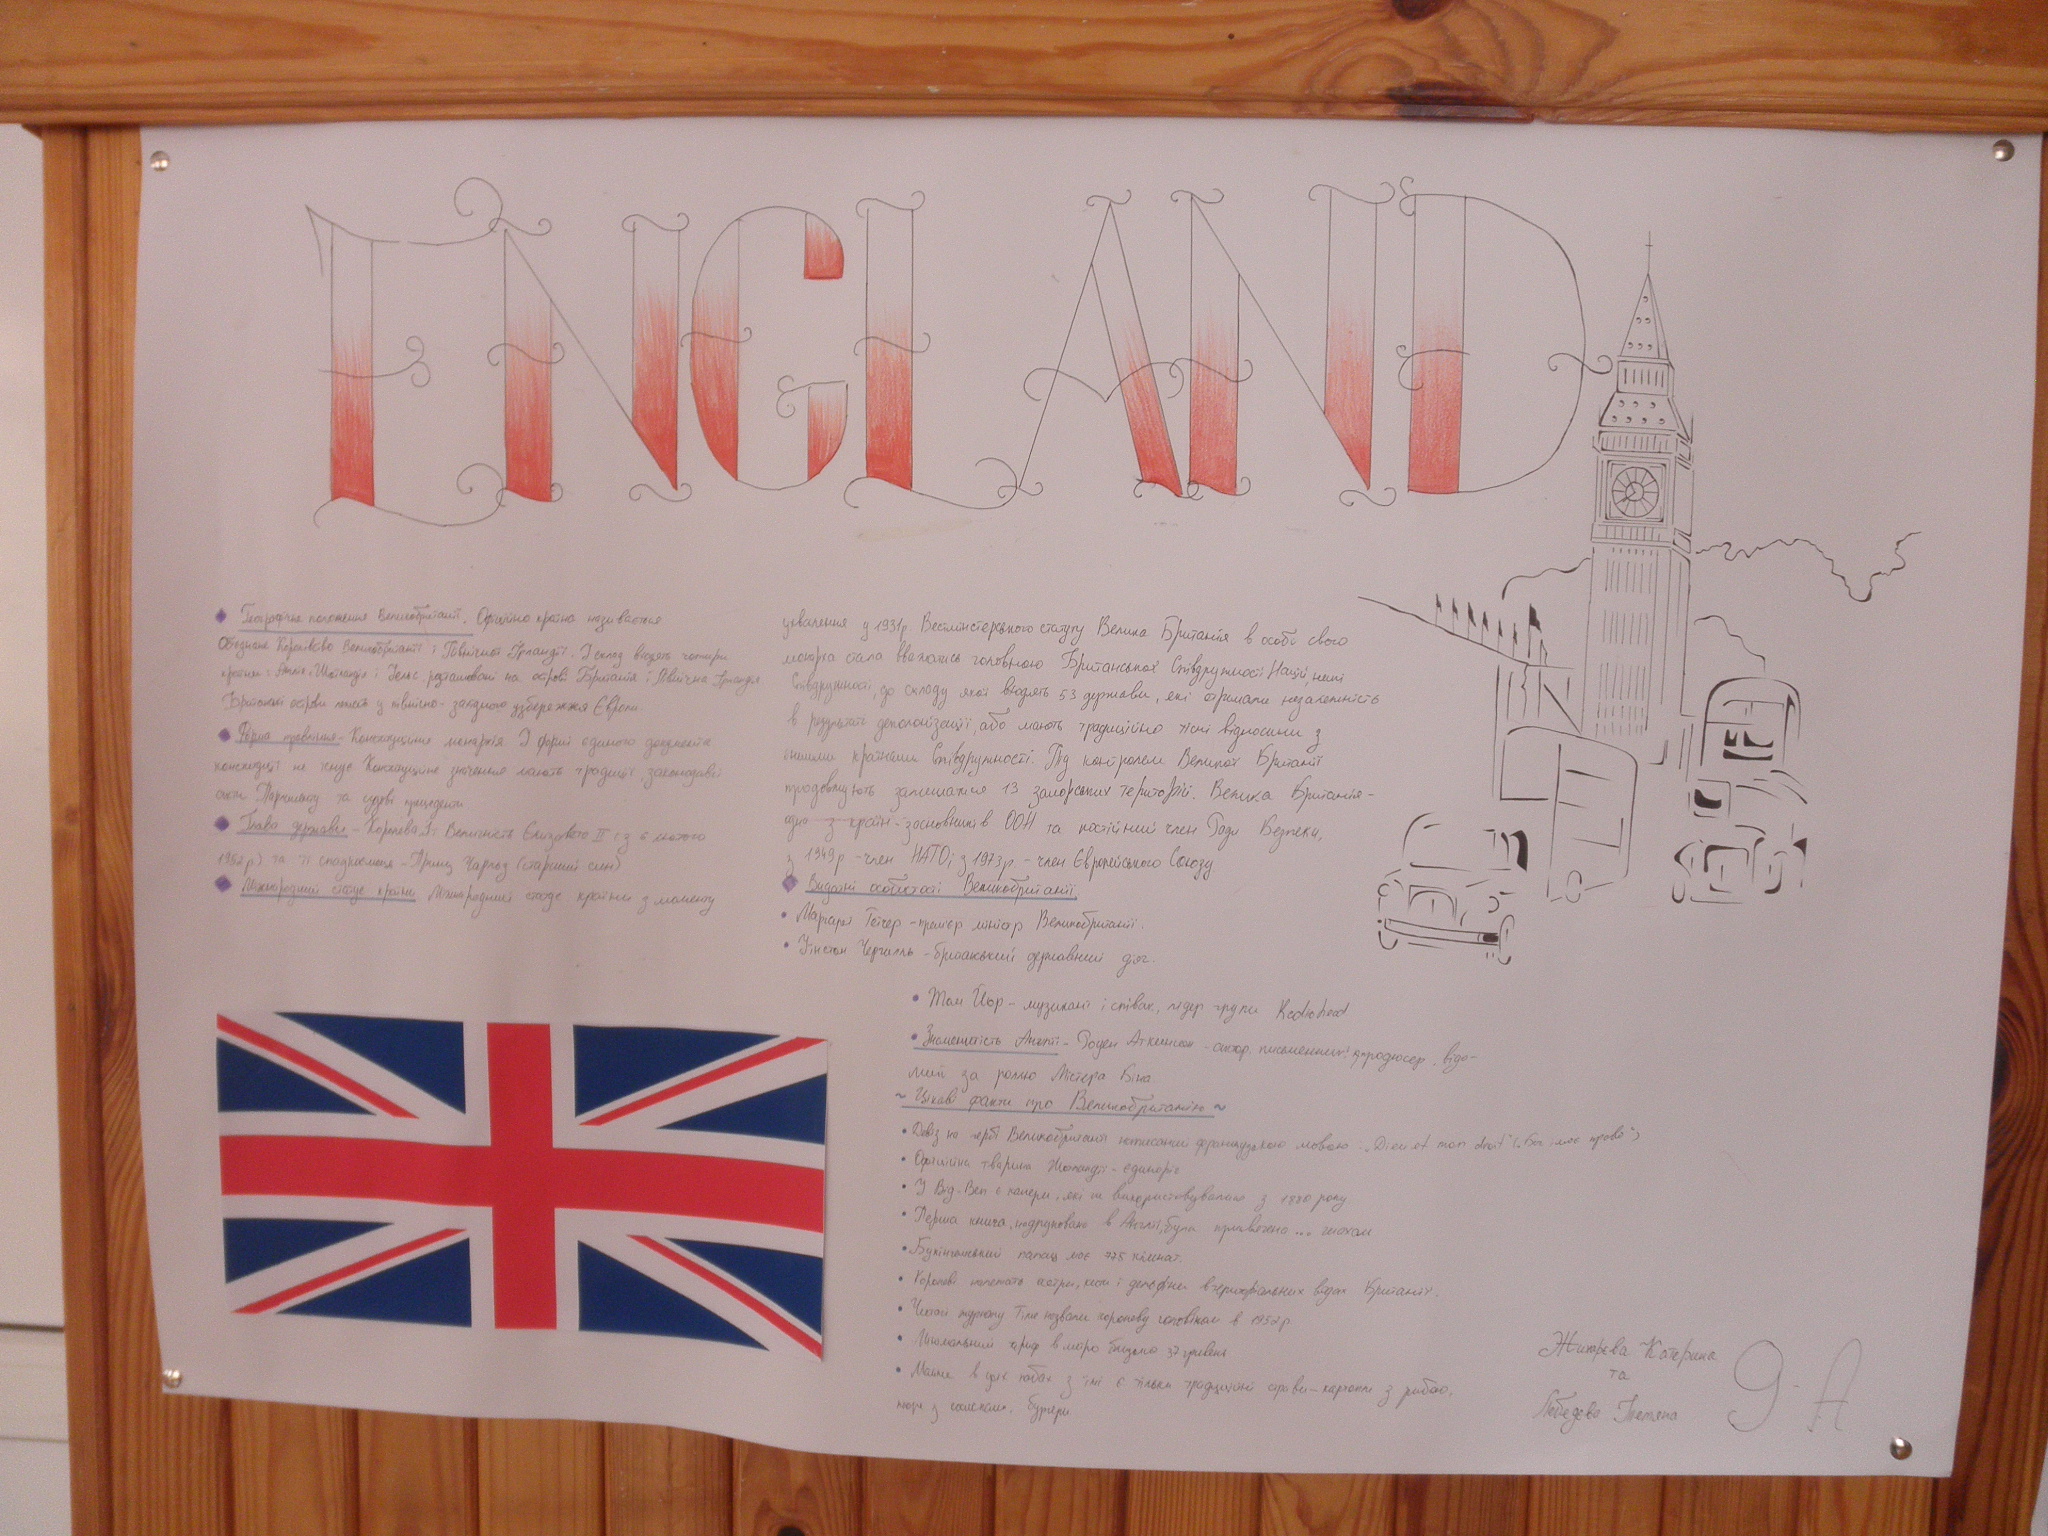 ENGLAND
Географічне положення Великобританії. Офіційно країна називається
Об'єднане Королівство Великобританії і Північної Ірландії. У склад входять чотири
країни: Англія, Шотландія і Уельс, розташовані на острові Британія і Північна Ірландія
Британські острови лежать у північно-західного узбережжя Європи.
Форма правління - Конституційна монархія У формі єдиного документа
конституції не існує Конституційне значення мають традиції, законодавчі
акти Парламенту та судові прецеденти
Глава держави - Королева Її Величність Єлизавета II (з 6 лютого
1952р.) та її спадкоємець - Принц Чарльз (старший син)
Міжнародний статус країни Міжнародний статус країни з моменту
ухвалення у 1931р. Вестмінстерського статуту Велика Британія в особі свого
монарха стала вважатись головною Британської Співдружності Націй, нині
Співдружності, до складу якої входять 53 держави, які отримали незалежність
в результаті деколонізації, або мають традиційно тісні відносини з
іншими країнами Співдружності. Під контролем Великої Британії
продовжують залишатися 13 заморських територій. Велика Британія -
одна з країн-засновників ООН та постійний член Ради Безпеки,
з 1949р - член НАТО, з 1973р. - член Європейського Союзу
Видатні особистості Великобританії.
Маргарет Тетчер - премєр міністр Великобританії.
Уінстон Черчилль - британський державний діяч.
Том Йорк - музикант і співак, лідер групи Radiohead
Знаменитість Англії - Роуен Аткинсон - актор, письменник, продюсер, відо-
мий за роллю Містера Біна
~ Цікаві факти про Великобританію ~
Девіз на гербі Великобританії написаний французькою мовою: „Dieu et mon droit" („Бог і моє право")
Офіційна тварина Шотландії - єдиноріг
У Big-Ben є камери, які не використовувались з 1880 року
Перша книга, надрукована в Англії, була присвячена... шахам
Букінгемський палац має 775 кімнат.
Королеві належать осетри, кити і дельфіни в територіальних водах Британії.
Читачі журналу Time назвали королеву чоловіком в 1952р
Мінімальний тариф в метро близько 37 гривень
Майже в усіх пабах з їжі є тільки традиційні страви - картопля з рибою,
Жихарєва Катерина
та
Лебедєва Тетяна
9-А